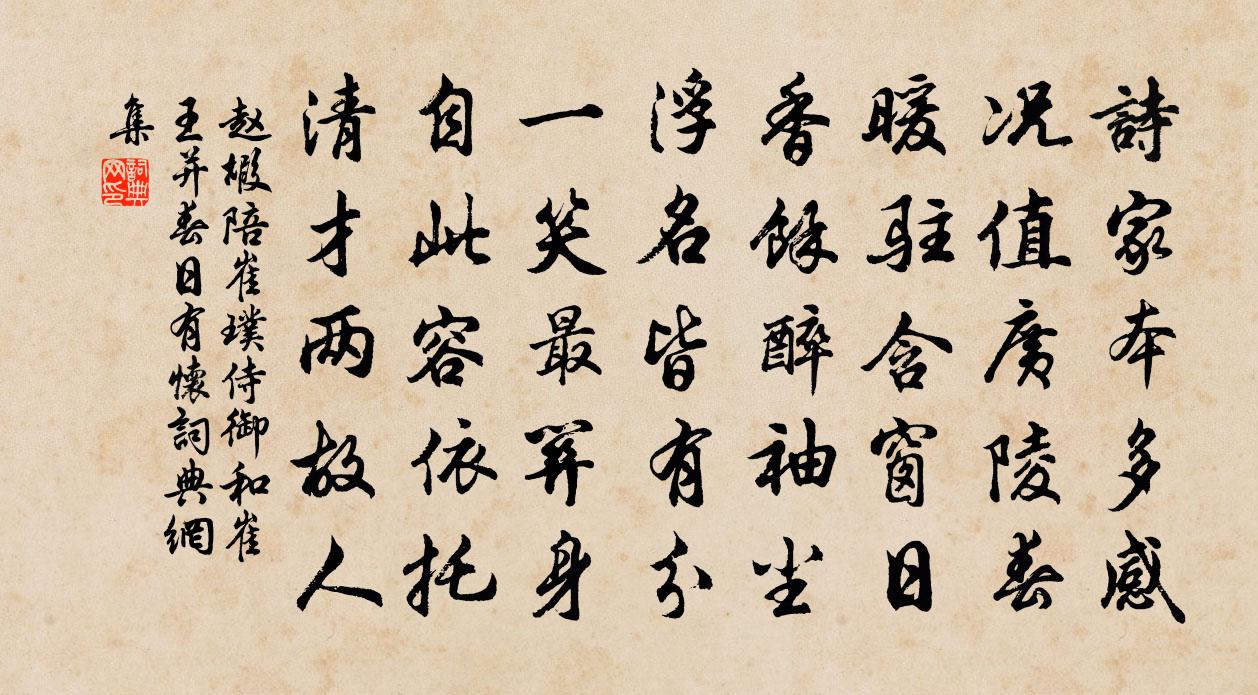 詩家本多感
况值廣陵春
暖駐含窗日
香餘醉袖尘
浮名皆有分
一笑最关身
自此容依托
清才两故人
赵嘏陪崔璞侍御和崔
王并春日有懷詞典網
集
詞典网印